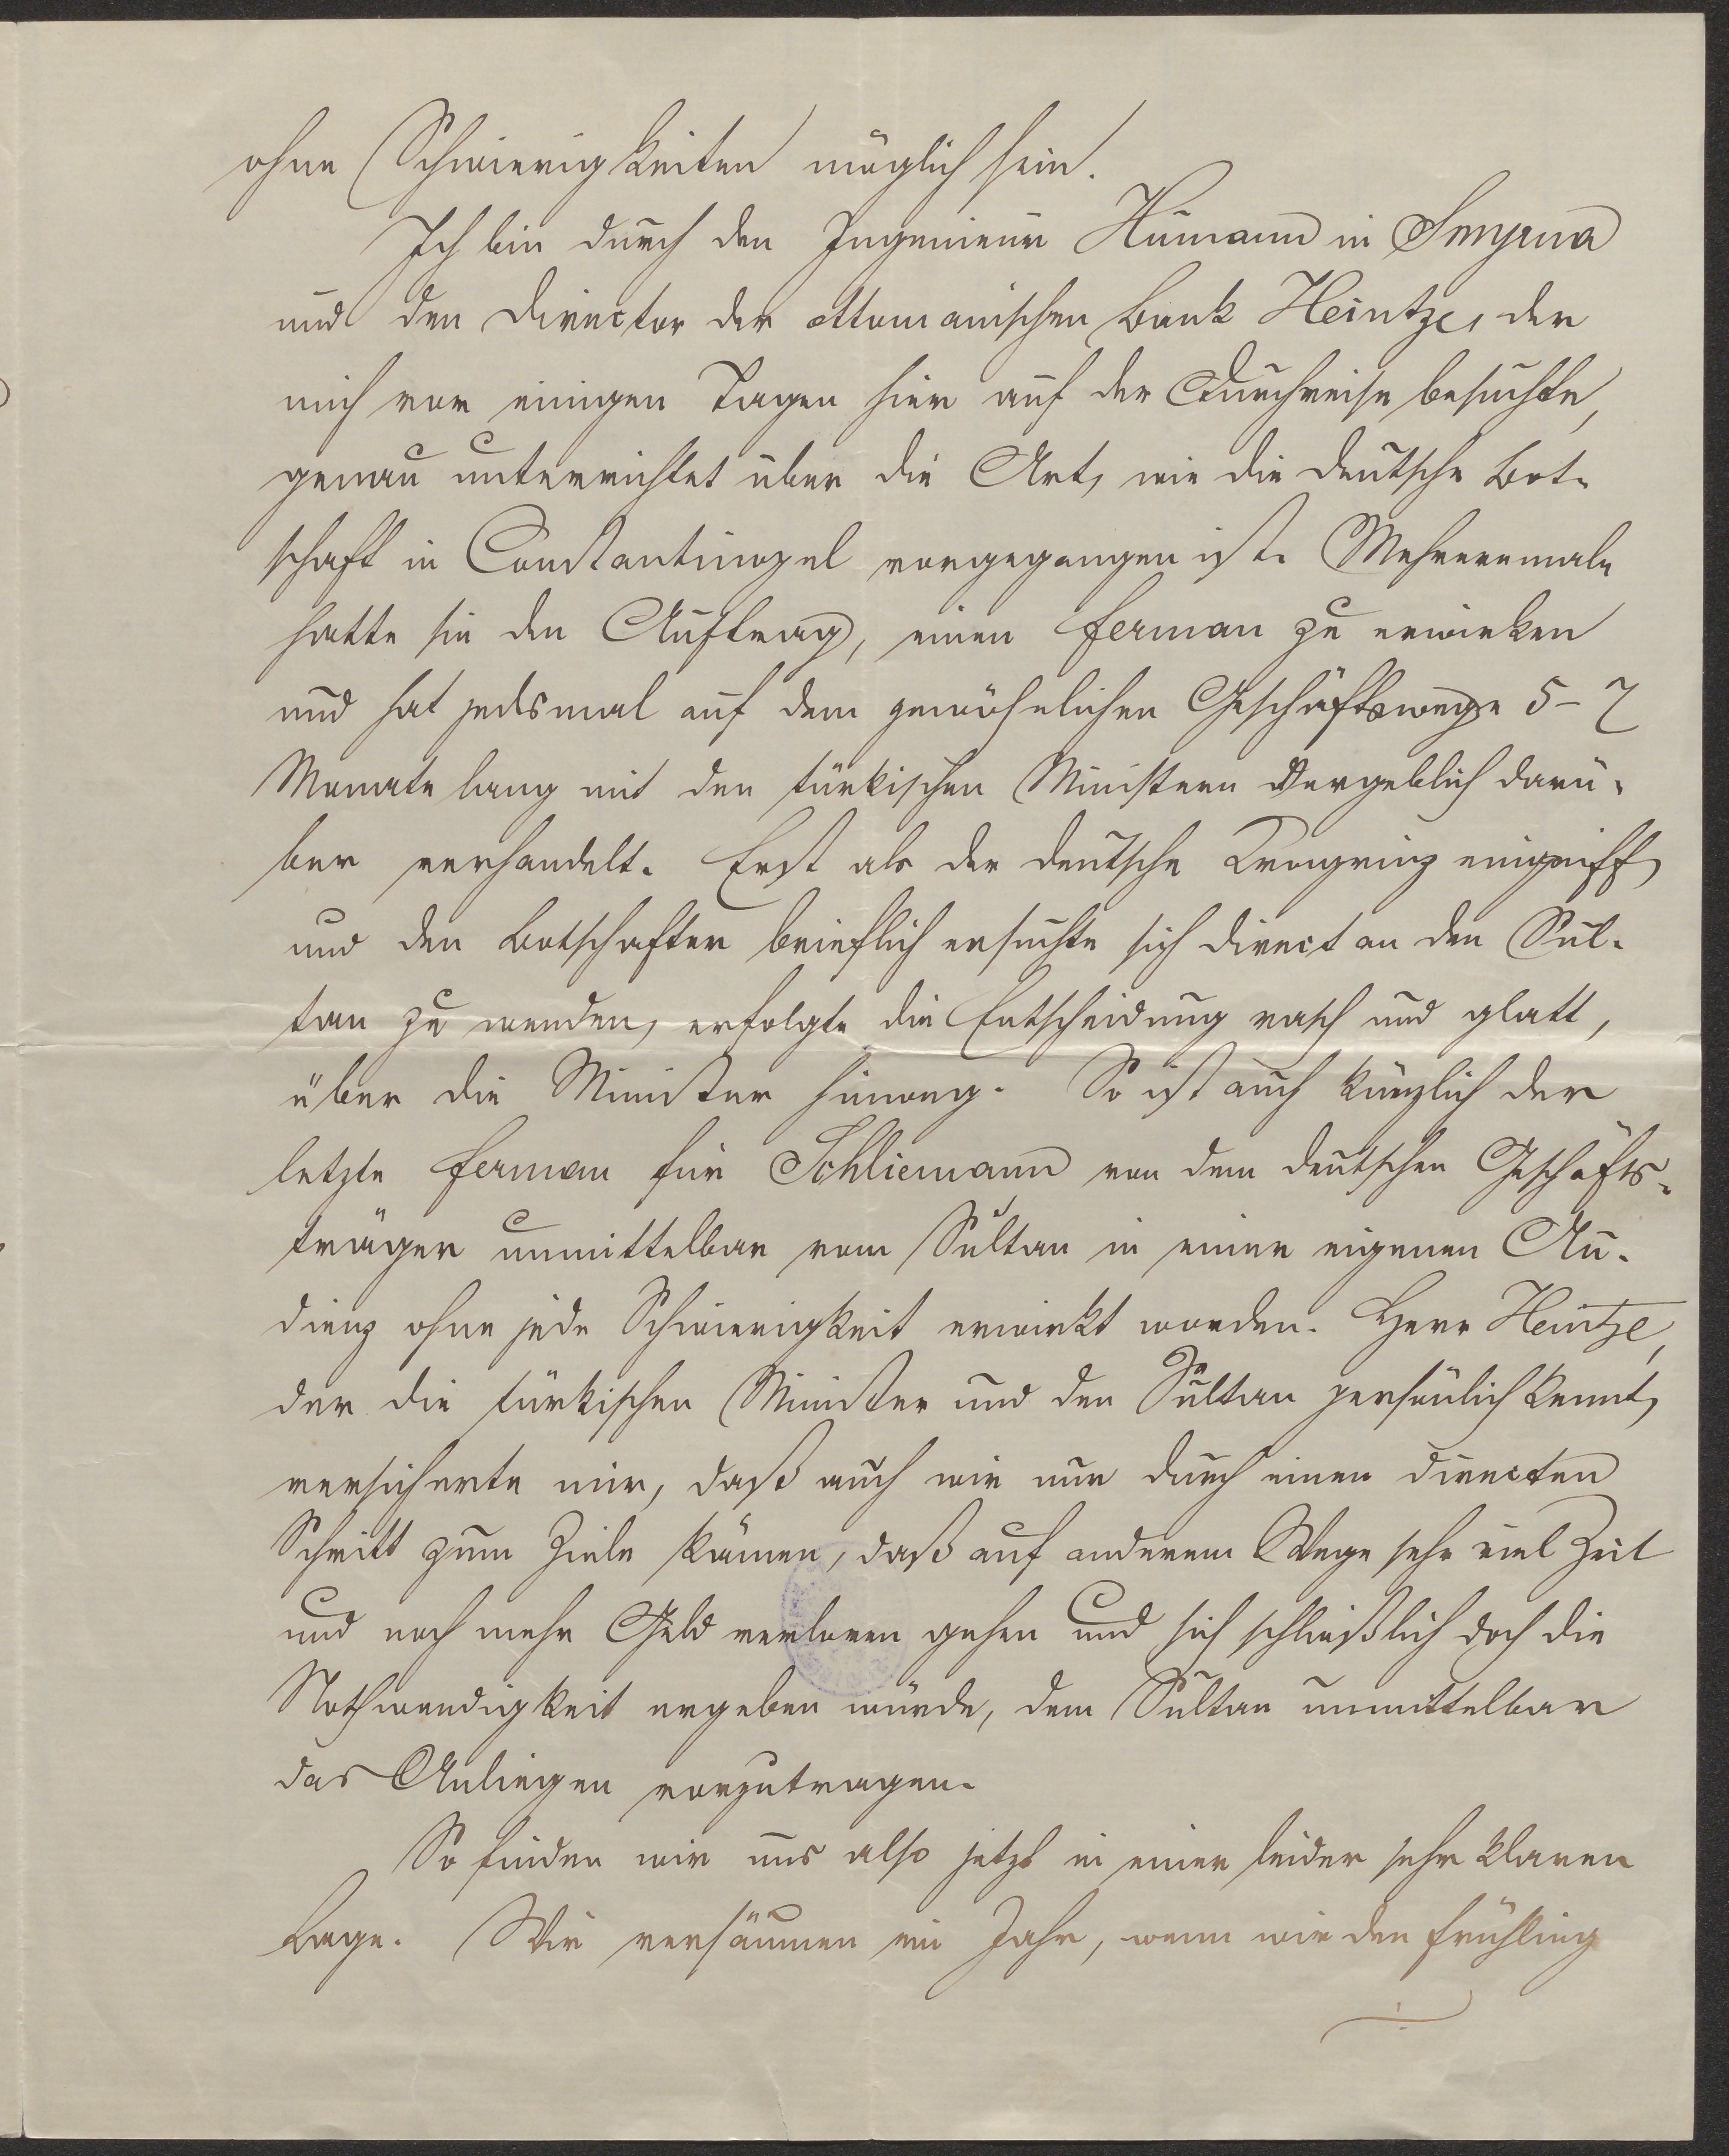 ohne Schwierigkeiten möglich sein.
Ich bin durch den Ingenieur Humann in Smyrna
und den Director der ottomanischen Bank Heintze, der
mich vor einigen Tagen hier auf der Durchreise besuchte,
genau unterrichtet über die Art, wie die deutsche Bot-
schaft in Constantinopel vorgegangen ist. Mehreremale
hatte sie den Auftrag, einen Ferman zu erwirken
und hat jedesmal auf dem gewöhnlichen Geschäftswege 5-7
Monate lang mit den türkischen Ministern vergeblich darü-
ber verhandelt. Erst als der deutsche Kronprinz eingriff
und den Botschafter brieflich ersuchte sich direct an den Sul-
tan zu wenden, erfolgte die Entscheidung rasch und glatt,
über die Minister hinweg. So ist auch kürzlich der
letzte Ferman für Schliemann von dem deutschen Geschäfts-
träger unmittelbar vom Sultan in einer eigenen Au-
dienz ohne jede Schwierigkeit erwirkt worden. Herr Heintze,
der die türkischen Minister und den Sultan persönlich kennt,
versicherte mir, daß auch wir nur durch einen directen
Schritt zum Ziele kämen, daß auf anderem Wege sehr viel Zeit
und noch mehr Geld verloren gehen und sich schließlich doch die
Nothwendigkeit ergeben würde, dem Sultan unmittelbar
das Anliegen vorzutragen.
So finden wir uns also jetzt in einer leider sehr klaren
Lage. Wir versäumen ein Jahr, wenn wir den Frühling